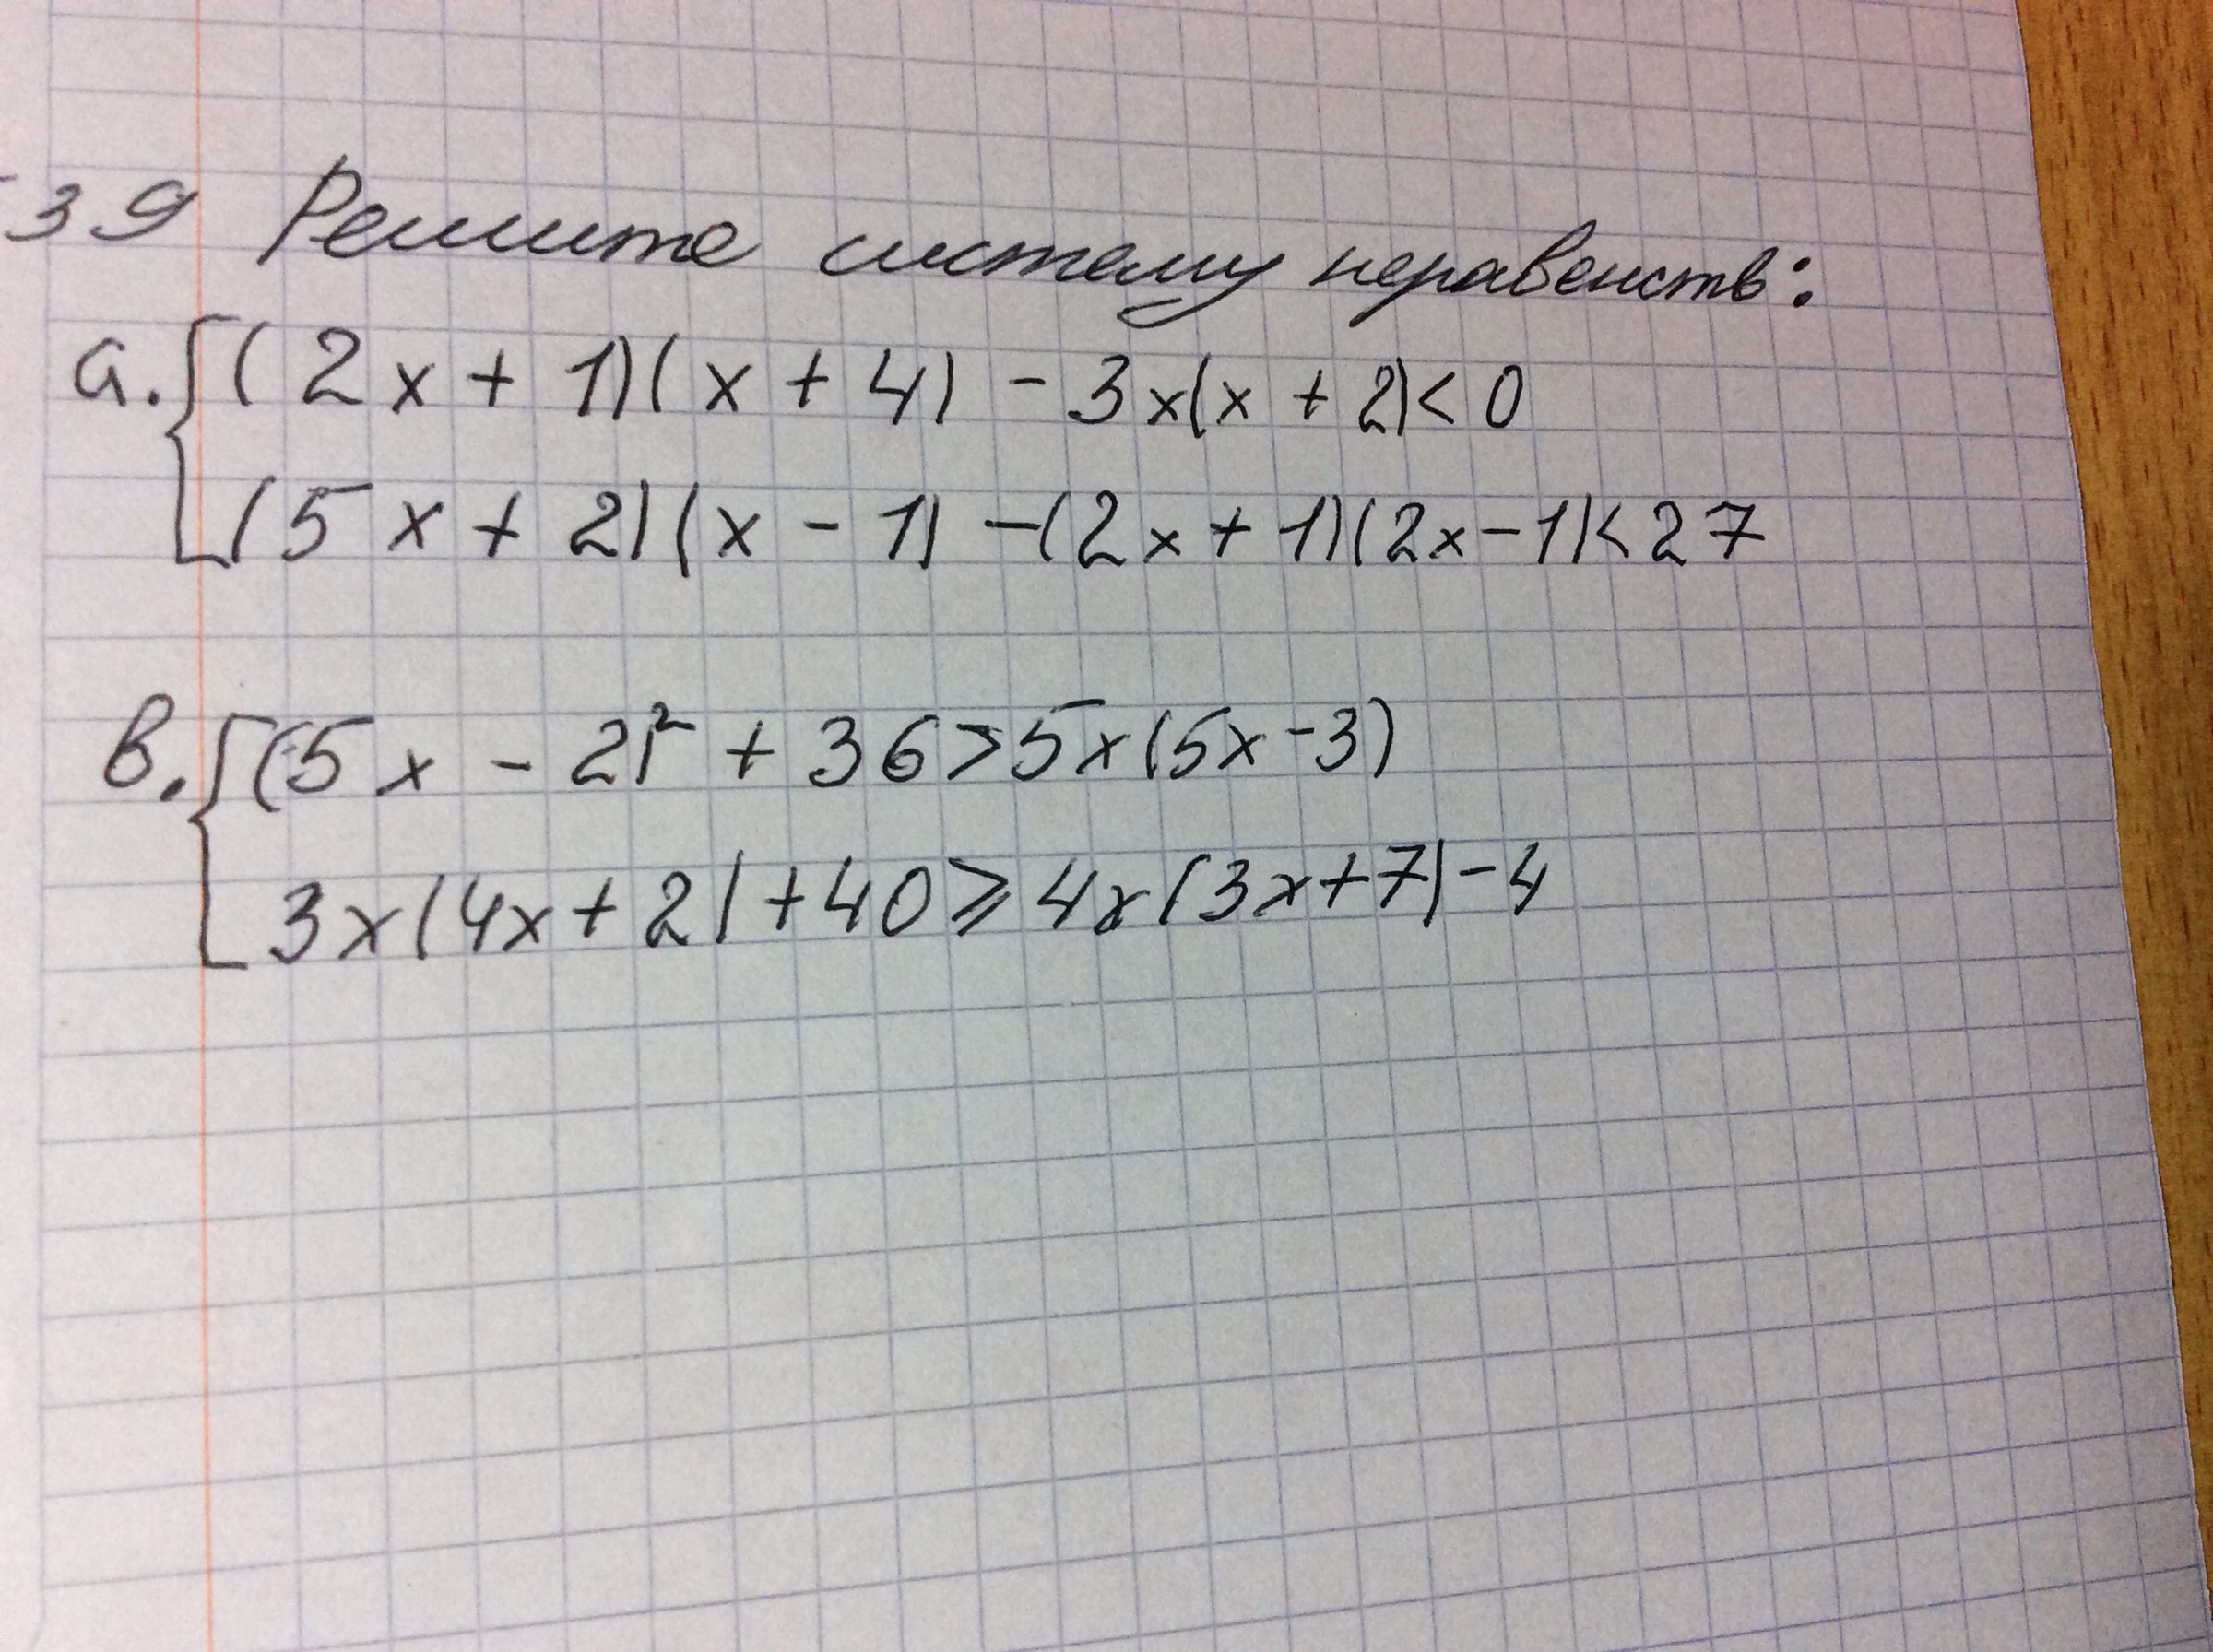 39 Решите систему неравенств:
а. { (2x + 1)(x + 4) - 3x(x + 2) < 0
(5x + 2)(x - 1) - (2x + 1)(2x - 1) < 27
в. { (5x - 2)² + 36 > 5x(5x - 3)
3x(4x + 2) + 40 ⩾ 4x(3x + 7) - 4